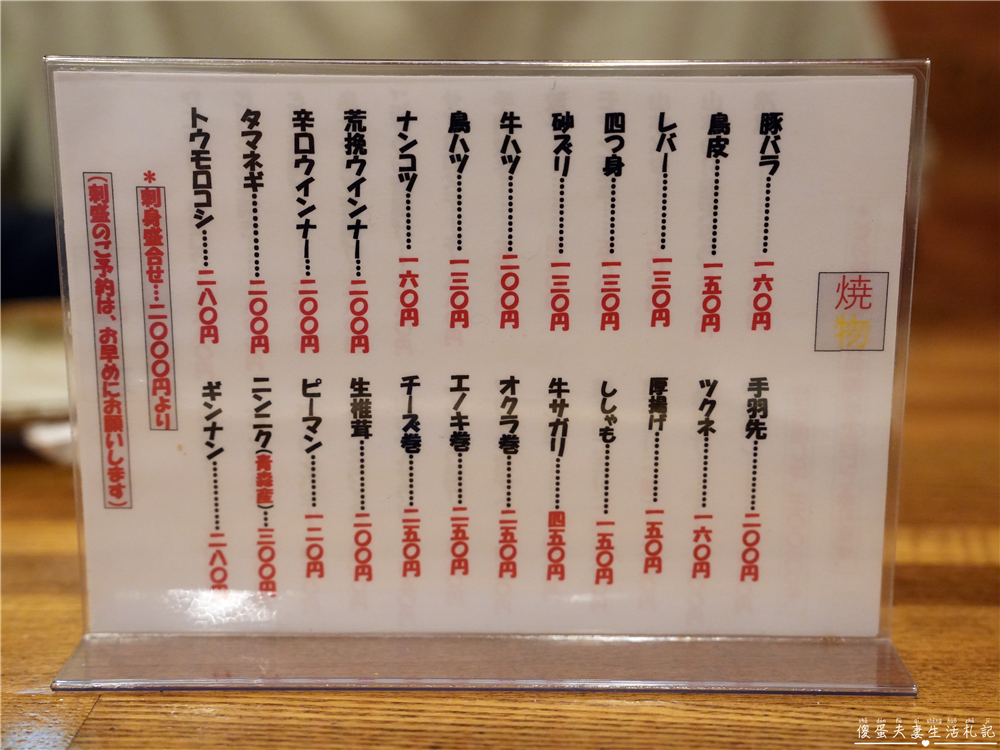 焼物
豚バラ………一六〇円
鳥皮………一五〇円
レバー………一三〇円
四つ身………一三〇円
砂ズリ………一三〇円
牛ハツ………二〇〇円
鳥ハツ………一三〇円
ナンコツ………一六〇円
荒挽ウインナー…二〇〇円
辛口ウインナー…二〇〇円
タマネギ………二〇〇円
トウモロコシ……二八〇円
手羽先………二〇〇円
ツクネ………一六〇円
厚揚げ………一五〇円
ししゃも………一五〇円
牛サガリ……四五〇円
オクラ巻……二五〇円
エノキ巻……二五〇円
チーズ巻……二五〇円
生椎茸………二〇〇円
ピーマン……一二〇円
ニンニク(青森産)…三〇〇円
ギンナン………二八〇円
*刺身盛合せ…二〇〇〇円より
(刺盛のご予約は、お早めにお願いします)
傻蛋夫妻生活札記